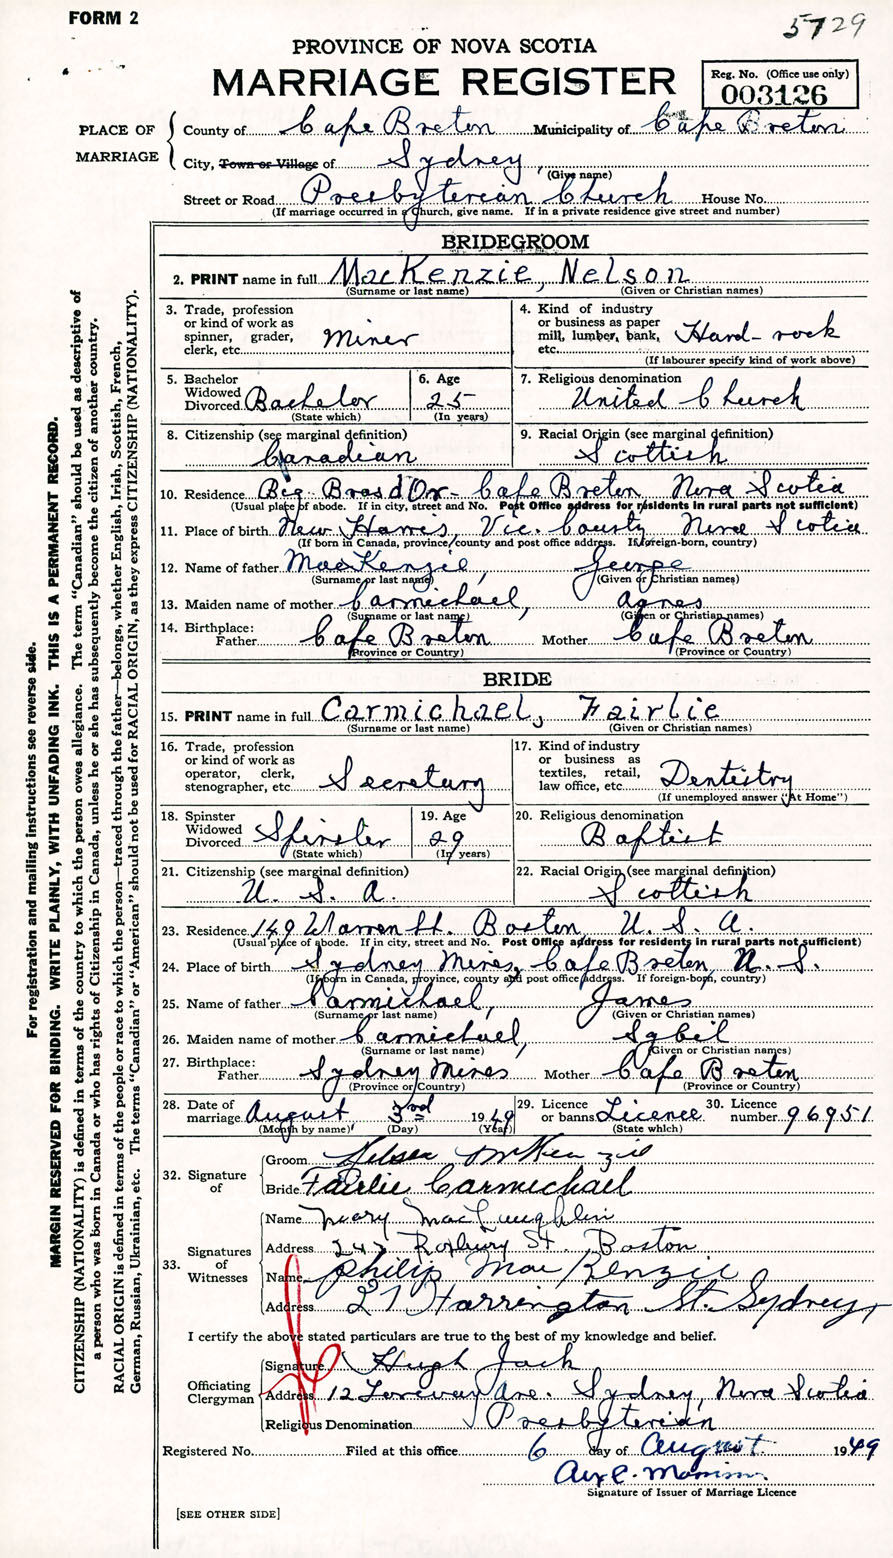 FORM 2
5729
PROVINCE OF NOVA SCOTIA
MARRIAGE REGISTER
Reg. No. (Office use only)
003126
PLACE OF MARRIAGE
County of Cape Breton Municipality of Cape Breton
City, Town or Village of Sydney
(Give name)
Street or Road Presbyterian Church House No.
(If marriage occurred in a Church, give name. If in a private residence give street and number)
BRIDEGROOM
2. PRINT name in full MacKenzie, Nelson
(Surname or last name) (Given or Christian names)
3. Trade, profession or kind of work as spinner, grader, clerk, etc. Miner
4. Kind of industry or business as paper mill, lumber, bank, etc. Hard-rock
(If labourer specify kind of work above)
5. Bachelor Widowed Divorced Bachelor
(State which)
6. Age 25
(In years)
7. Religious denomination United Church
8. Citizenship (see marginal definition) Canadian
9. Racial Origin (see marginal definition) Scottish
10. Residence Big Bras d'Or - Cape Breton Nova Scotia
(Usual place of abode. If in city, street and No. Post Office address for residents in rural parts not sufficient)
11. Place of birth New Harris Vic. County Nova Scotia
(If born in Canada, province, county and post office address. If foreign-born, country)
12. Name of father MacKenzie, George
(Surname or last name) (Given or Christian names)
13. Maiden name of mother Carmichael, Agnes
(Surname or last name) (Given or Christian names)
14. Birthplace: Father Cape Breton Mother Cape Breton
(Province or Country) (Province or Country)
BRIDE
15. PRINT name in full Carmichael, Fairlie
(Surname or last name) (Given or Christian names)
16. Trade, profession or kind of work as operator, clerk, stenographer, etc. Secretary
17. Kind of industry or business as textiles, retail, law office, etc. Dentistry
(If unemployed answer "At Home")
18. Spinster Widowed Divorced Spinster
(State which)
19. Age 29
(In years)
20. Religious denomination Baptist
21. Citizenship (see marginal definition) U. S. A.
22. Racial Origin (see marginal definition) Scottish
23. Residence 149 Warren St. Boston, U. S. A.
(Usual place of abode. If in city, street and No. Post Office address for residents in rural parts not sufficient)
24. Place of birth Sydney Mines, Cape Breton, N. S.
(If born in Canada, province, county and post office address. If foreign-born, country)
25. Name of father Carmichael, James
(Surname or last name) (Given or Christian names)
26. Maiden name of mother Carmichael, Sybil
(Surname or last name) (Given or Christian names)
27. Birthplace: Father Sydney Mines Mother Cape Breton
(Province or Country) (Province or Country)
28. Date of marriage August 3rd 1949
(Month by name) (Day) (Year)
29. Licence or banns Licence
(State which)
30. Licence number 96951
32. Signature of
Groom Nelson McKenzie
Bride Fairlie Carmichael
33. Signatures of Witnesses
Name Mary MacLaughlin
Address 247 Roxbury St. Boston
Name Philip MacKenzie
Address 27 Harrington St. Sydney
I certify the above stated particulars are true to the best of my knowledge and belief.
Officiating Clergyman
Signature Hugh Jack
Address 12 Ave. Sydney, Nova Scotia
Religious Denomination Presbyterian
Registered No. Filed at this office 6 day of August 1949
Signature of Issuer of Marriage Licence
[SEE OTHER SIDE]
For registration and mailing instructions see reverse side.
MARGIN RESERVED FOR BINDING. WRITE PLAINLY, WITH UNFADING INK. THIS IS A PERMANENT RECORD.
CITIZENSHIP (NATIONALITY) is defined in terms of the country to which the person owes allegiance. The term "Canadian" should be used as descriptive of
a person who was born in Canada or who has rights of Citizenship in Canada, unless he or she has subsequently become the citizen of another country.
RACIAL ORIGIN is defined in terms of the people or race to which the person—traced through the father—belongs, whether English, Irish, Scottish, French,
German, Russian, Ukrainian, etc. The terms "Canadian" or "American" should not be used for RACIAL ORIGIN, as they express CITIZENSHIP (NATIONALITY).